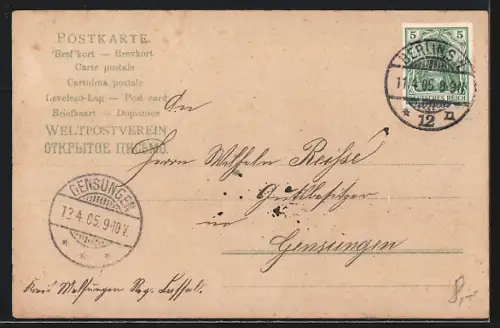 POSTKARTE.
Brefkort – Brevkort
Carte postale
Cartolina postale
Levelezo-Lap – Post card
Briefkaart – Dopisnice
WELTPOSTVEREIN
ОТКРЫТОЕ ПИСЬМО.
5 5
DEUTSCHES REICH
BERLIN S.W.
11.4.05. 8-9N.
* 12
An
Herrn Wilhelm Reiße
Gutsbesitzer
in
Gensungen
GENSUNGEN
12.4.05. 9-10V.
* * *
Kreis Melsungen Reg. Cassel.
8,-